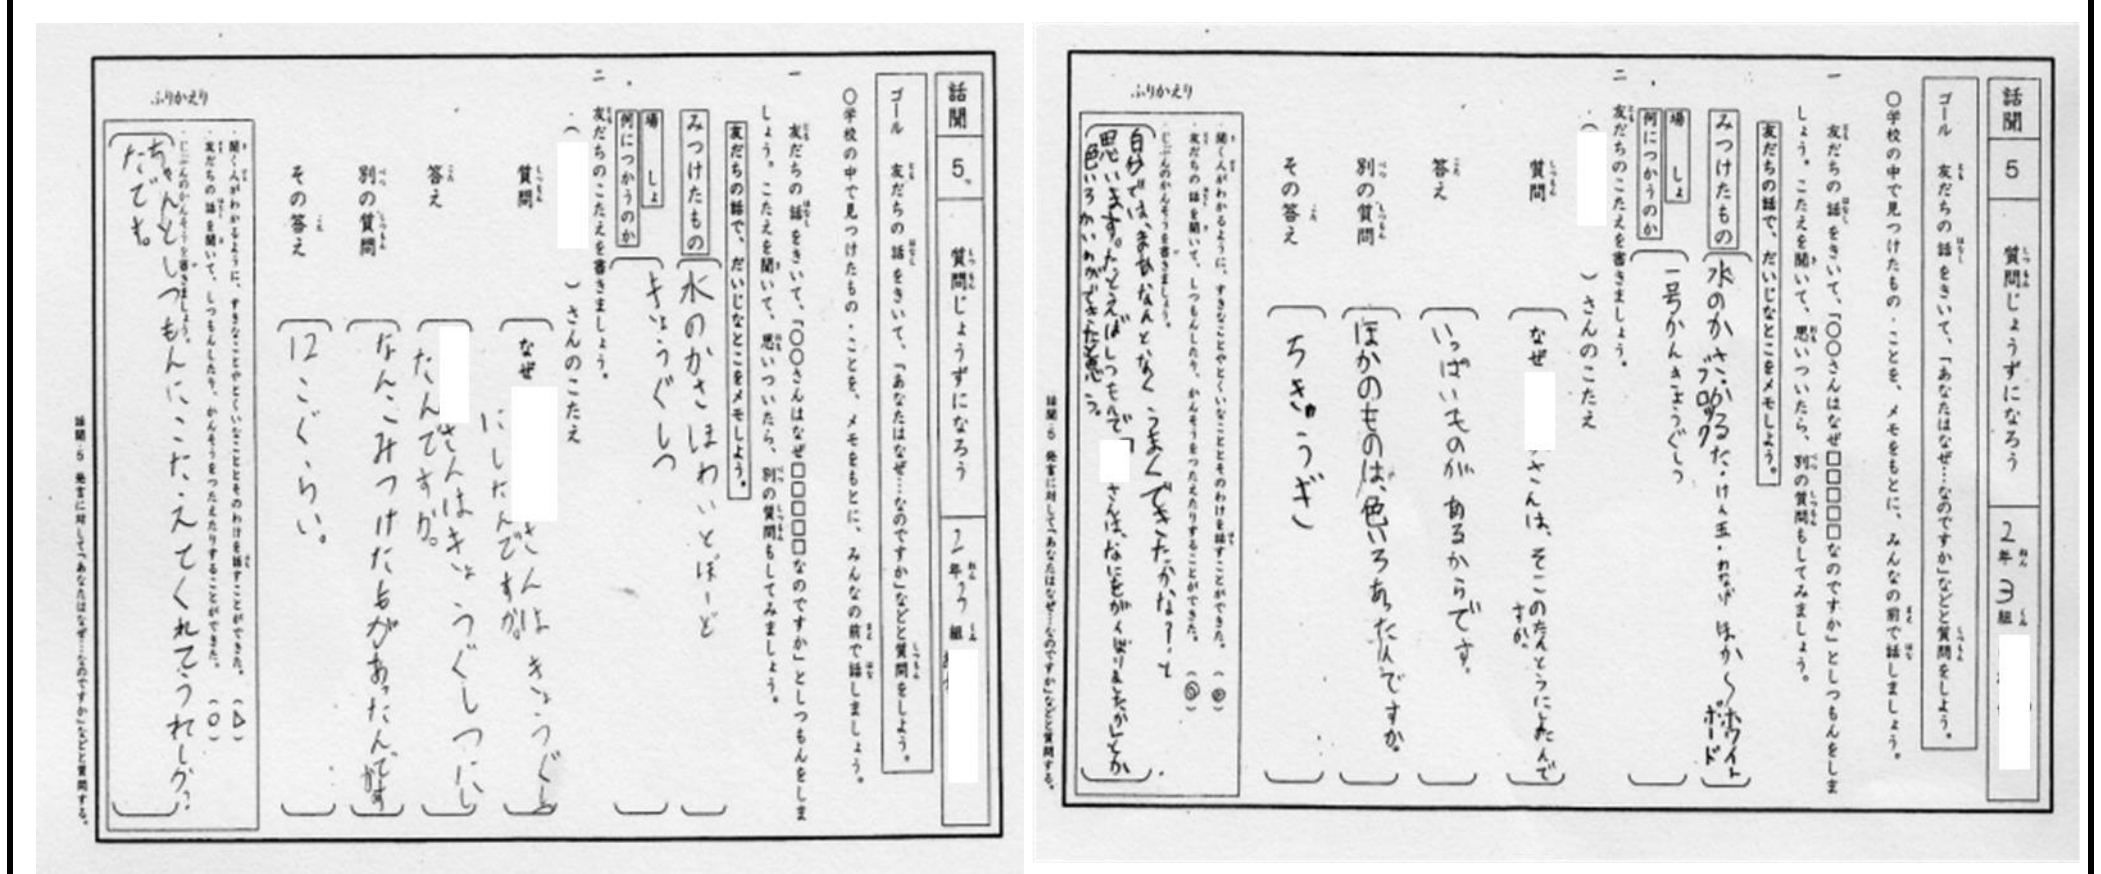 話聞
5
質問じょうずになろう
2年3組
ゴール 友だちの話をきいて、「あなたはなぜ…なのですか」などと質問をしよう。
○学校の中で見つけたもの・ことを、メモをもとに、みんなの前で話しましょう。
一 友だちの話をきいて、「○○さんはなぜ□□□□□なのですか」としつもんをしま
しょう。こたえを聞いて、思いついたら、別の質問もしてみましょう。
友だちの話で、だいじなとこをメモしよう。
みつけたもの
水のかさほわいとぼーど
場しょ
何につかうのか
きょうぐしつ
二 友だちのこたえを書きましょう。
( )さんのこたえ
質問 なぜ
さんは きょうぐし
にしたんですか。
答え
さんはきょうぐしつにし
たんですか。
別の質問 なんこみつけたものがあったんですか
その答え 12こぐらい。
ふりかえり
・聞く人がわかるように、すきなことやとくいなこととそのわけを話すことができた。(△)
・友だちの話を聞いて、しつもんしたり、かんそうをつたえたりすることができた。(○)
・じぶんのかんそうを書きましょう。
ちゃんとしつもんにこたえてくれてうれしか?
たです。
話聞・5 発言に対して「あなたはなぜ…なのですか」などと質問する。
話聞
5
質問じょうずになろう
2年3組
ゴール 友だちの話をきいて、「あなたはなぜ…なのですか」などと質問をしよう。
○学校の中で見つけたもの・ことを、メモをもとに、みんなの前で話しましょう。
一 友だちの話をきいて、「○○さんはなぜ□□□□□なのですか」としつもんをしま
しょう。こたえを聞いて、思いついたら、別の質問もしてみましょう。
友だちの話で、だいじなとこをメモしよう。
みつけたもの
水のかさ
ブロック
けん玉・わなげ ほか〜ホワイト
ボード
場しょ
何につかうのか
一号かんきょうぐしつ
二 友だちのこたえを書きましょう。
( )さんのこたえ
質問 なぜ
さんは、そこのたんとうにしたんで
すか。
答え いっぱいものがあるからです。
別の質問 ほかのものは、色いろあったんですか。
その答え ちきゅうぎ
ふりかえり
・聞く人がわかるように、すきなことやとくいなこととそのわけを話すことができた。(◎)
・友だちの話を聞いて、しつもんしたり、かんそうをつたえたりすることができた。(◎)
・じぶんのかんそうを書きましょう。
自分では、まあなんとなくうまくできたかな?と
思います。たとえばしつもんで「
さんは、なにをがんばりましたか」とか
色いろかいわができたと思う。
話聞・5 発言に対して「あなたはなぜ…なのですか」などと質問する。